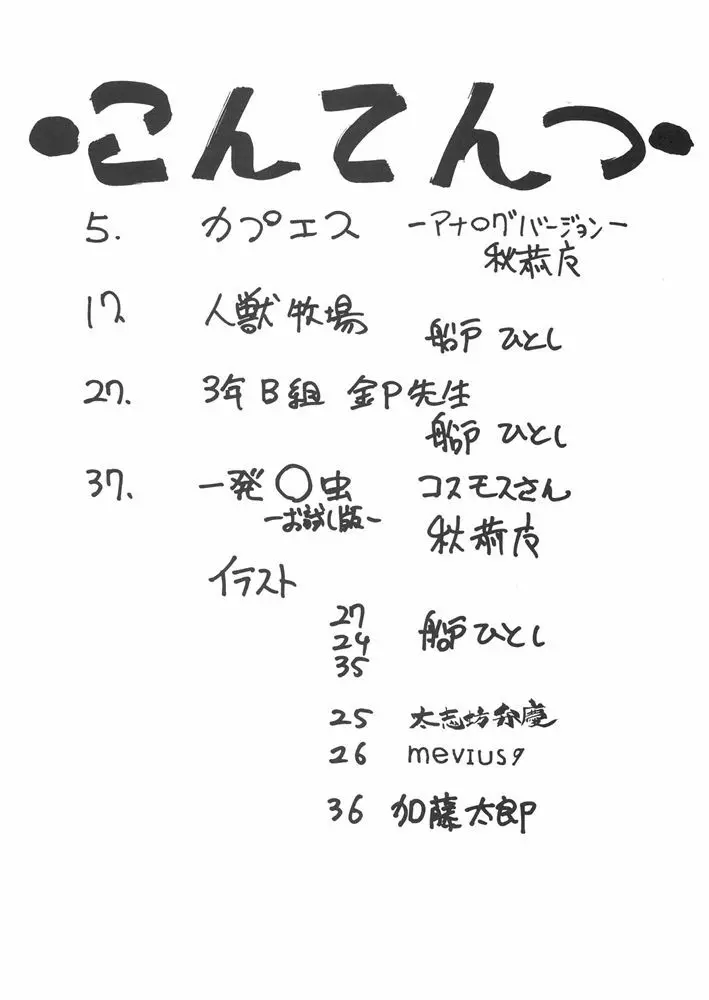 ・こんてんつ・
5. カプエス －アナログバージョン－
秋恭庵
17. 人獣牧場
船戸 ひとし
27. 3年B組 金P先生
船戸 ひとし
37. 一発○虫 コスモスさん
－お試し版－
秋恭庵
イラスト
27
24 船戸ひとし
35
25 太志坊弁慶
26 mevius9
36 加藤太郎